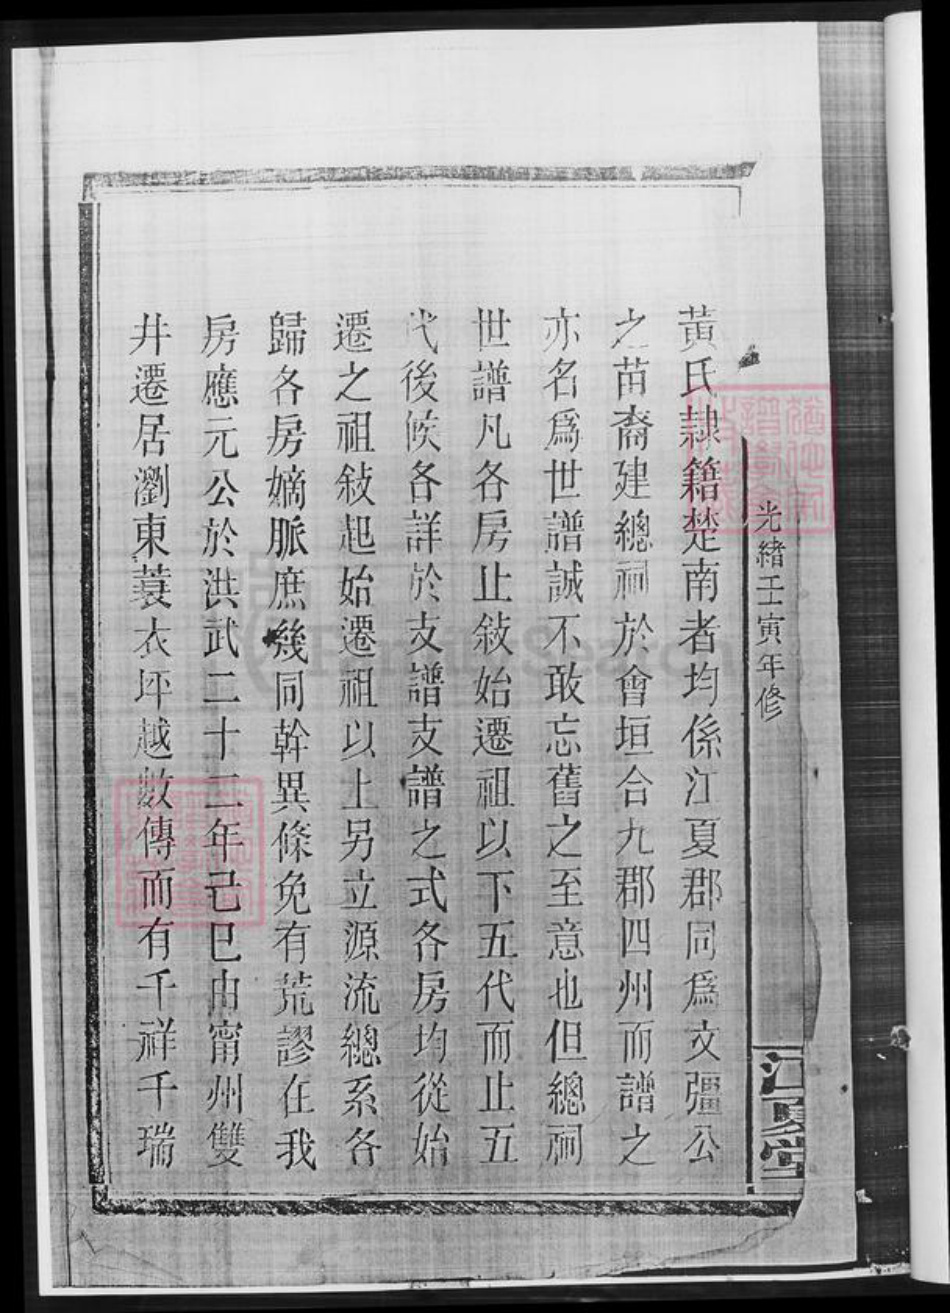 光緒壬寅年修
江夏堂
黃氏隷籍楚南者均係江夏郡同爲文彊公
之苗裔建總祠於會垣合九郡四州而譜之
亦名爲世譜誠不敢忘舊之至意也但總祠
世譜凡各房止敍始遷祖以下五代而止五
代後候各詳於支譜支譜之式各房均從始
遷之祖敍起始遷祖以上另立源流總系各
歸各房嫡脈庶幾同幹異條免有荒謬在我
房應元公於洪武二十二年己巳由甯州雙
井遷居瀏東蓑衣坪越數傳而有千祥千瑞